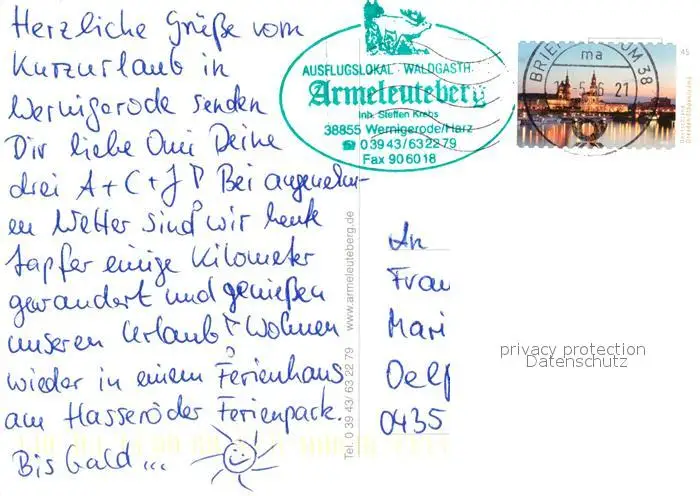 Herzliche Grüße vom
Kurzurlaub in
Wernigerode senden
Dir liebe Omi Deine
drei A + C + J! Bei angenehm-
en Wetter sind wir heute
tapfer einige Kilometer
gewandert und genießen
unseren Urlaub! Wohnen
wieder in einem Ferienhaus
am Hasseröder Ferienpark.
Bis bald...
AUSFLUGSLOKAL · WALDGASTH.
Armeleuteberg
Inh. Steffen Krebs
38855 Wernigerode/Harz
☎ 0 39 43/63 22 79
Fax 90 60 18
Tel. 0 39 43/ 63 22 79 www.armeleuteberg.de
BRIEFZENTRUM 38
ma
21
45
An
Frau
Mari
Oelf
0435
privacy protection
Datenschutz